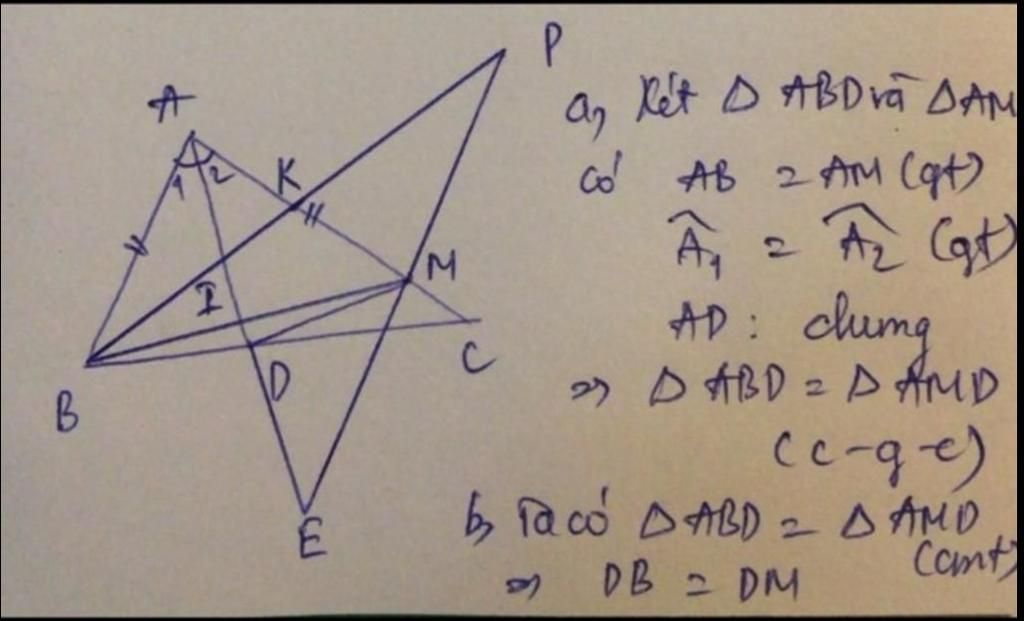 P
A
1 2
K
M
I
B
D
C
E
a, Xét Δ ABD và Δ AM
có AB = AM (gt)
Â₁ = Â₂ (gt)
AD : chung
=> Δ ABD = Δ AMD
(c-g-c)
b, Ta có Δ ABD = Δ AMD
(cmt)
=> DB = DM